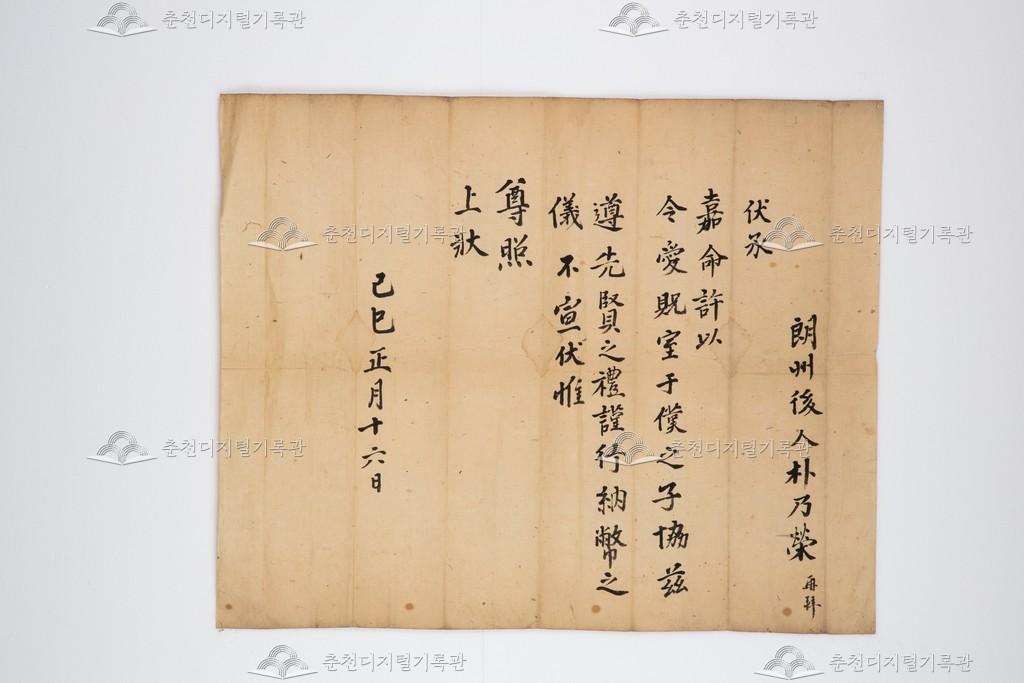 朗州後人朴乃榮再拜
伏承
嘉命許以
令愛貺室于僕之子協玆
遵先賢之禮謹行納幣之
儀不宣伏惟
尊照
上狀
己巳正月十六日
춘천디지털기록관
춘천디지털기록관
춘천디지털기록관
춘천디지털기록관
춘천디지털기록관
춘천디지털기록관
춘천디지털기록관
춘천디지털기록관